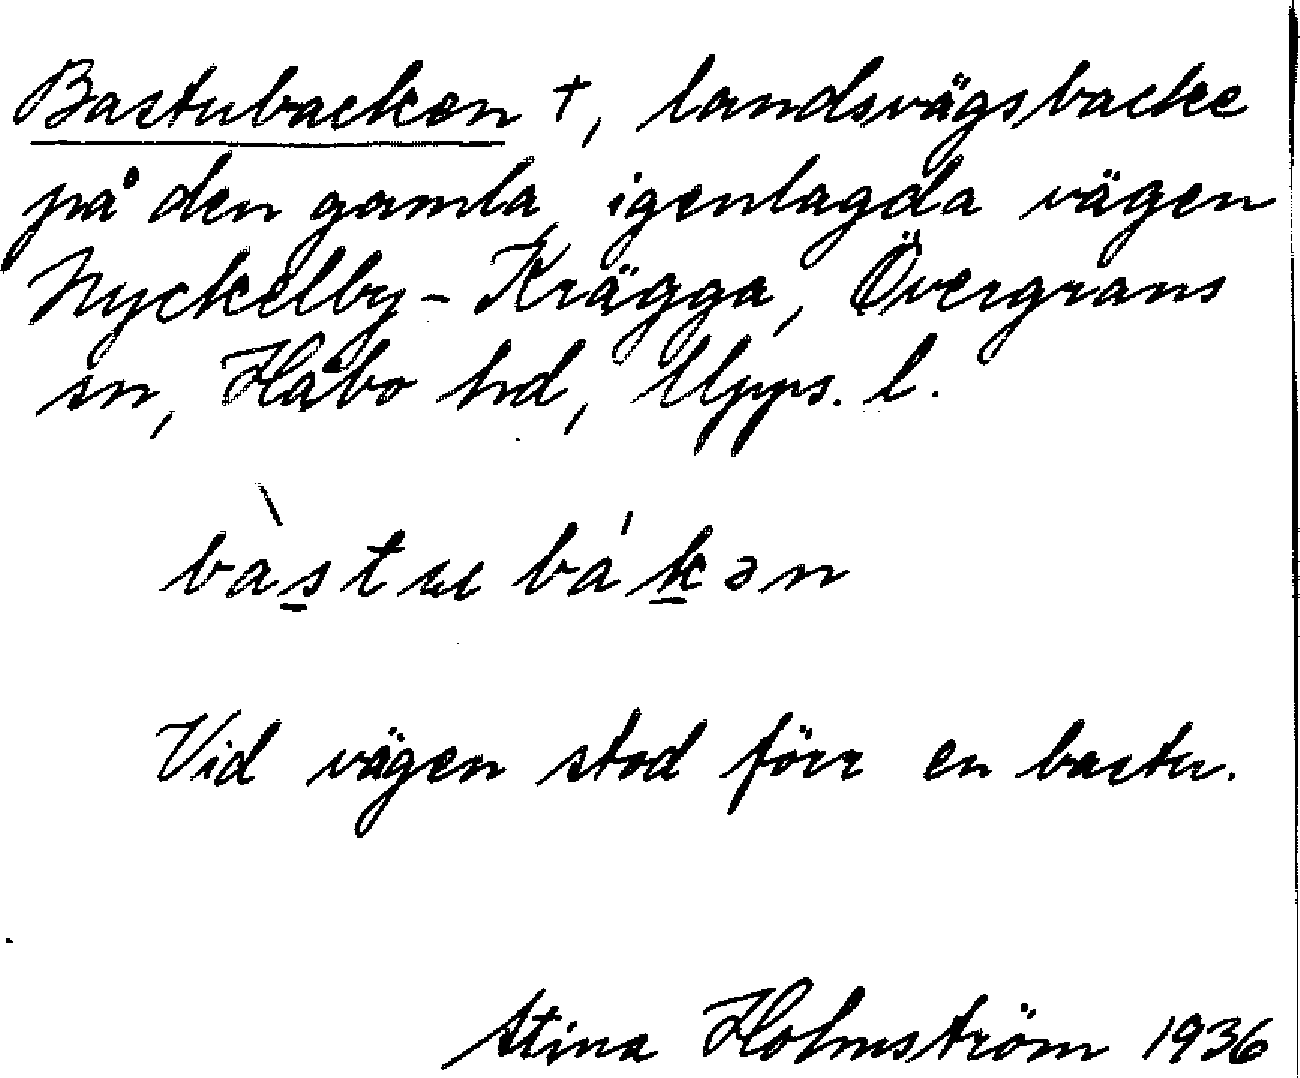 Bastubacken +, landsvägsbacke
på den gamla, igenlagda vägen
Nyckelby - Krägga, Övergrans
sn, Håbo hd, Upps. l.
bàs̲tu bák̲ən
Vid vägen stod förr en bastu.
Stina Holmström 1936